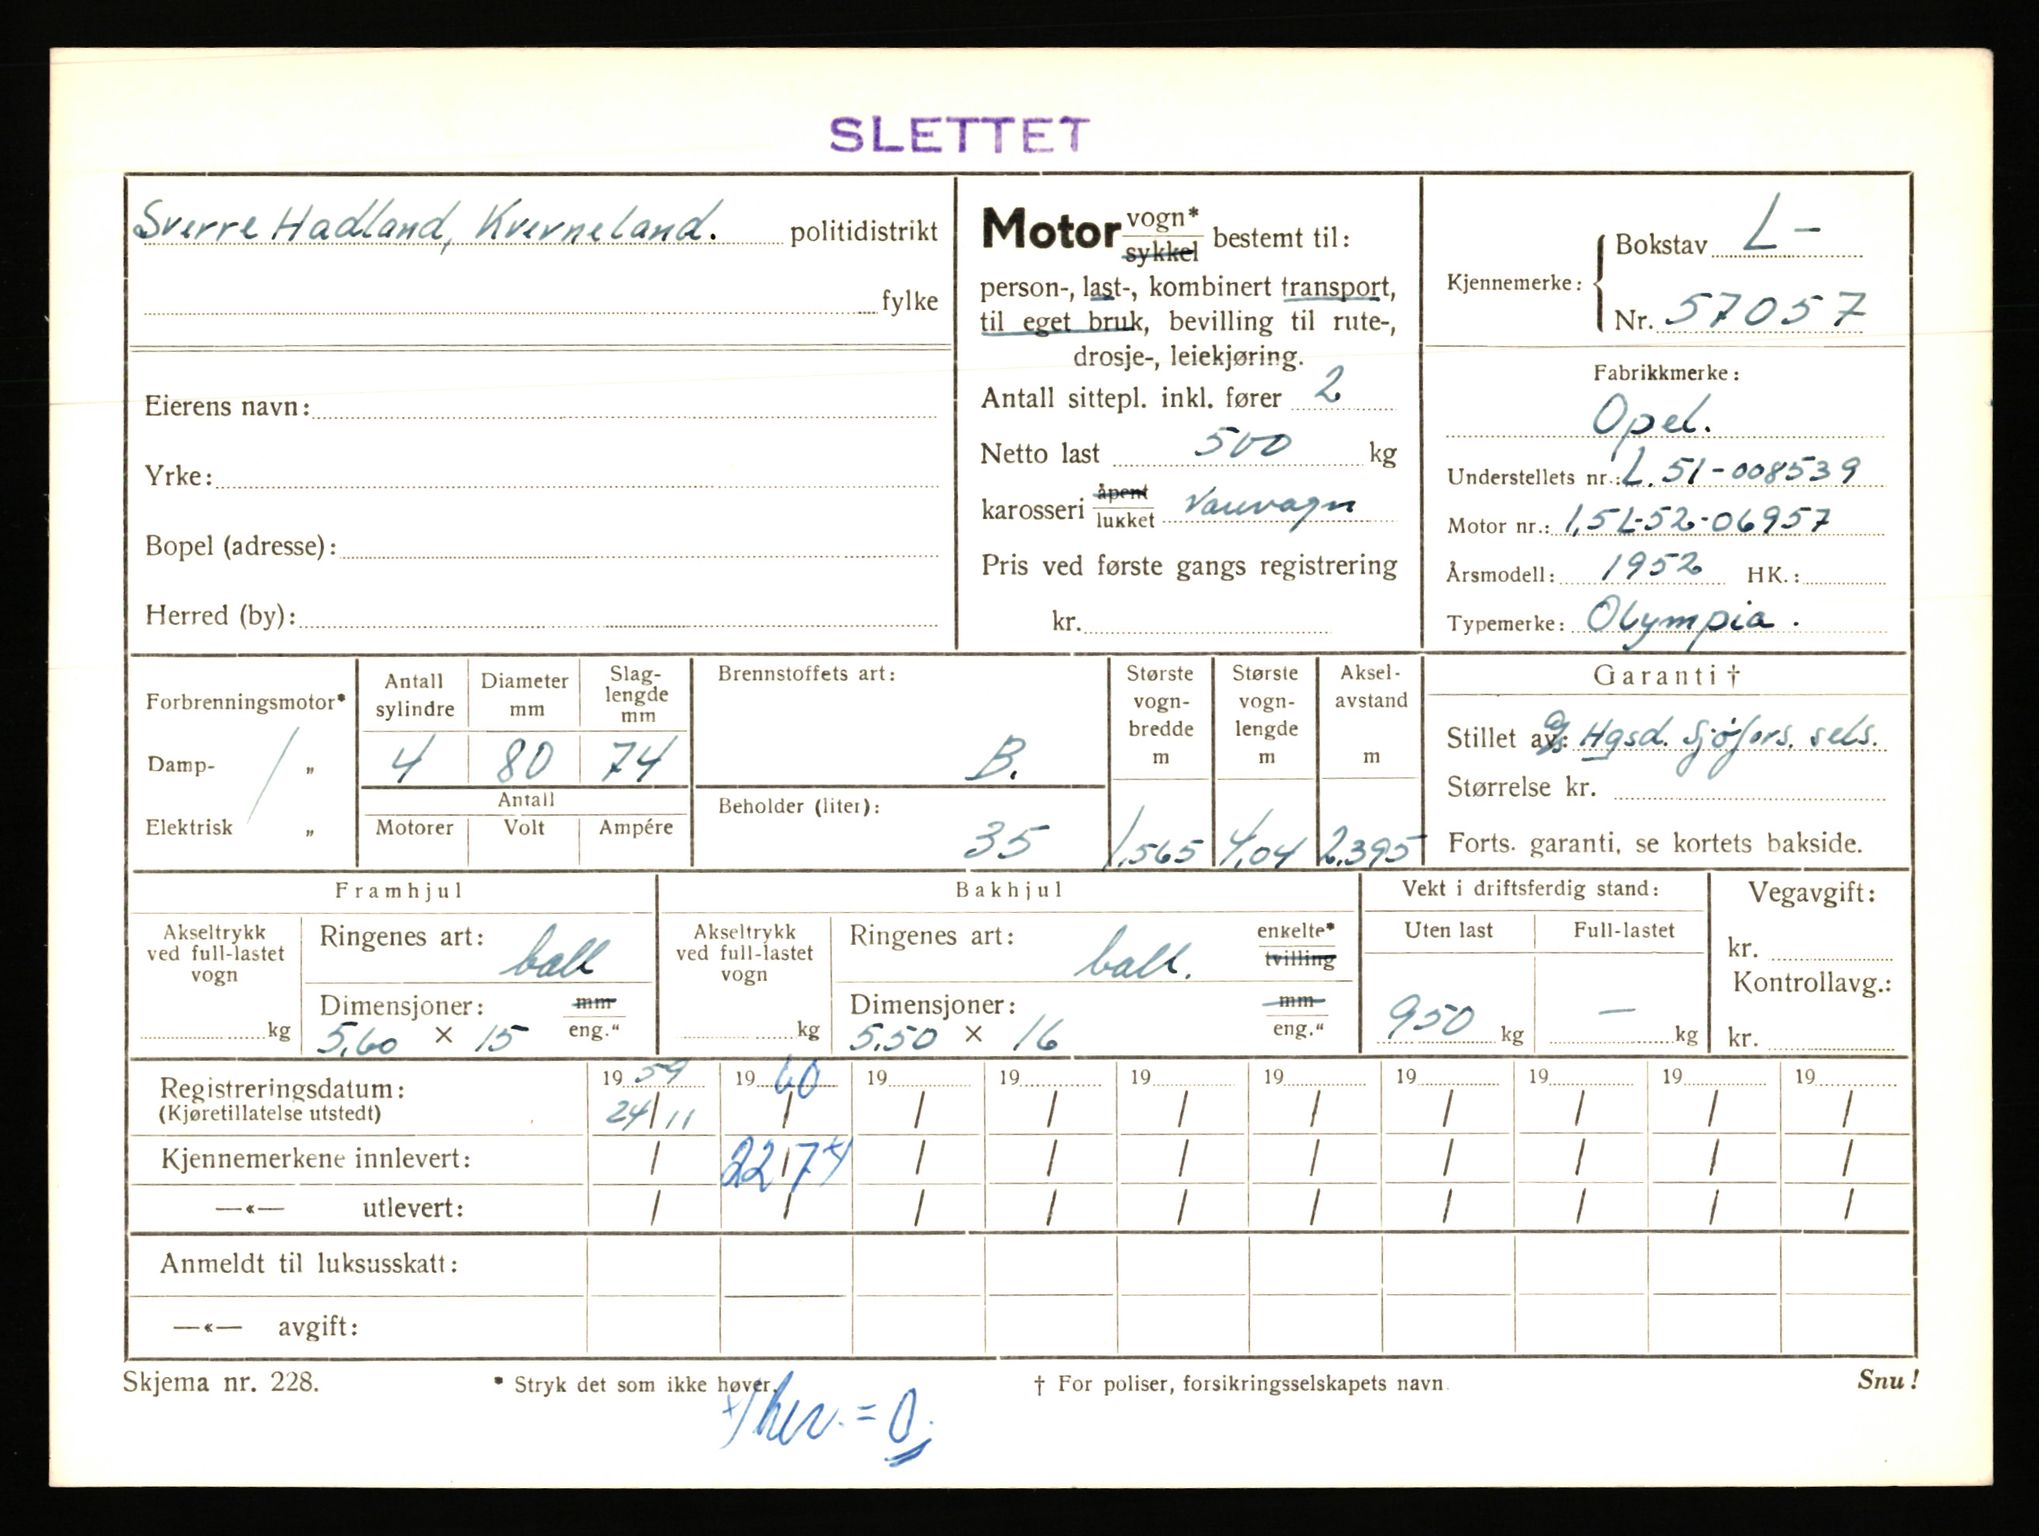 SLETTET
Sverre Hadland, Kverneland. politidistrikt
fylke
Eierens navn:
Yrke:
Bopel (adresse):
Herred (by):
Motor vogn* sykkel bestemt til:
person-, last-, kombinert transport,
til eget bruk, bevilling til rute-,
drosje-, leiekjøring.
Antall sittepl. inkl. fører 2
Netto last 500 kg
karosseri åpent lukket Varevogn
Pris ved første gangs registrering
kr.
Kjennemerke:
Bokstav L-
Nr. 57057
Fabrikkmerke:
Opel.
Understellets nr.: L.51-008539
Motor nr.: 1,5L-52-06957
Årsmodell: 1952 HK.:
Typemerke: Olympia.
Forbrenningsmotor*
Damp- „
Elektrisk „
Antall sylindre
4
Diameter mm
80
Slag-lengde mm
74
Antall
Motorer Volt Ampére
Brennstoffets art:
B.
Beholder (liter):
35
Største vogn-bredde m
1,565
Største vogn-lengde m
4,04
Aksel-avstand m
2,395
Garanti †
Stillet av: Hgsd. Sjøfors. sels.
Størrelse kr.
Forts. garanti, se kortets bakside.
Framhjul
Akseltrykk ved full-lastet vogn
kg
Ringenes art: ball
Dimensjoner: mm eng."
5.60 × 15
Bakhjul
Akseltrykk ved full-lastet vogn
kg
Ringenes art: ball. enkelte* tvilling
Dimensjoner: mm eng."
5.50 × 16
Vekt i driftsferdig stand:
Uten last Full-lastet
950 kg — kg
Vegavgift:
kr.
Kontrollavg.:
kr.
Registreringsdatum: 19 59 19 60 19 19 19 19 19 19 19 19
(Kjøretillatelse utstedt) 24/11 / / / / / / / / /
Kjennemerkene innlevert: / 22/7 x) / / / / / / / /
—«— utlevert: / / / / / / / / / /
Anmeldt til luksusskatt:
—«— avgift:
Skjema nr. 228. * Stryk det som ikke høver. † For poliser, forsikringsselskapets navn. Snu!
= 0.